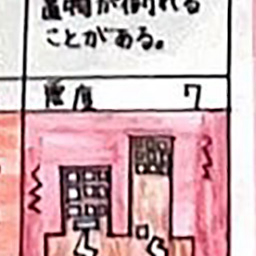 置物が倒れる
ことがある。
震度 7